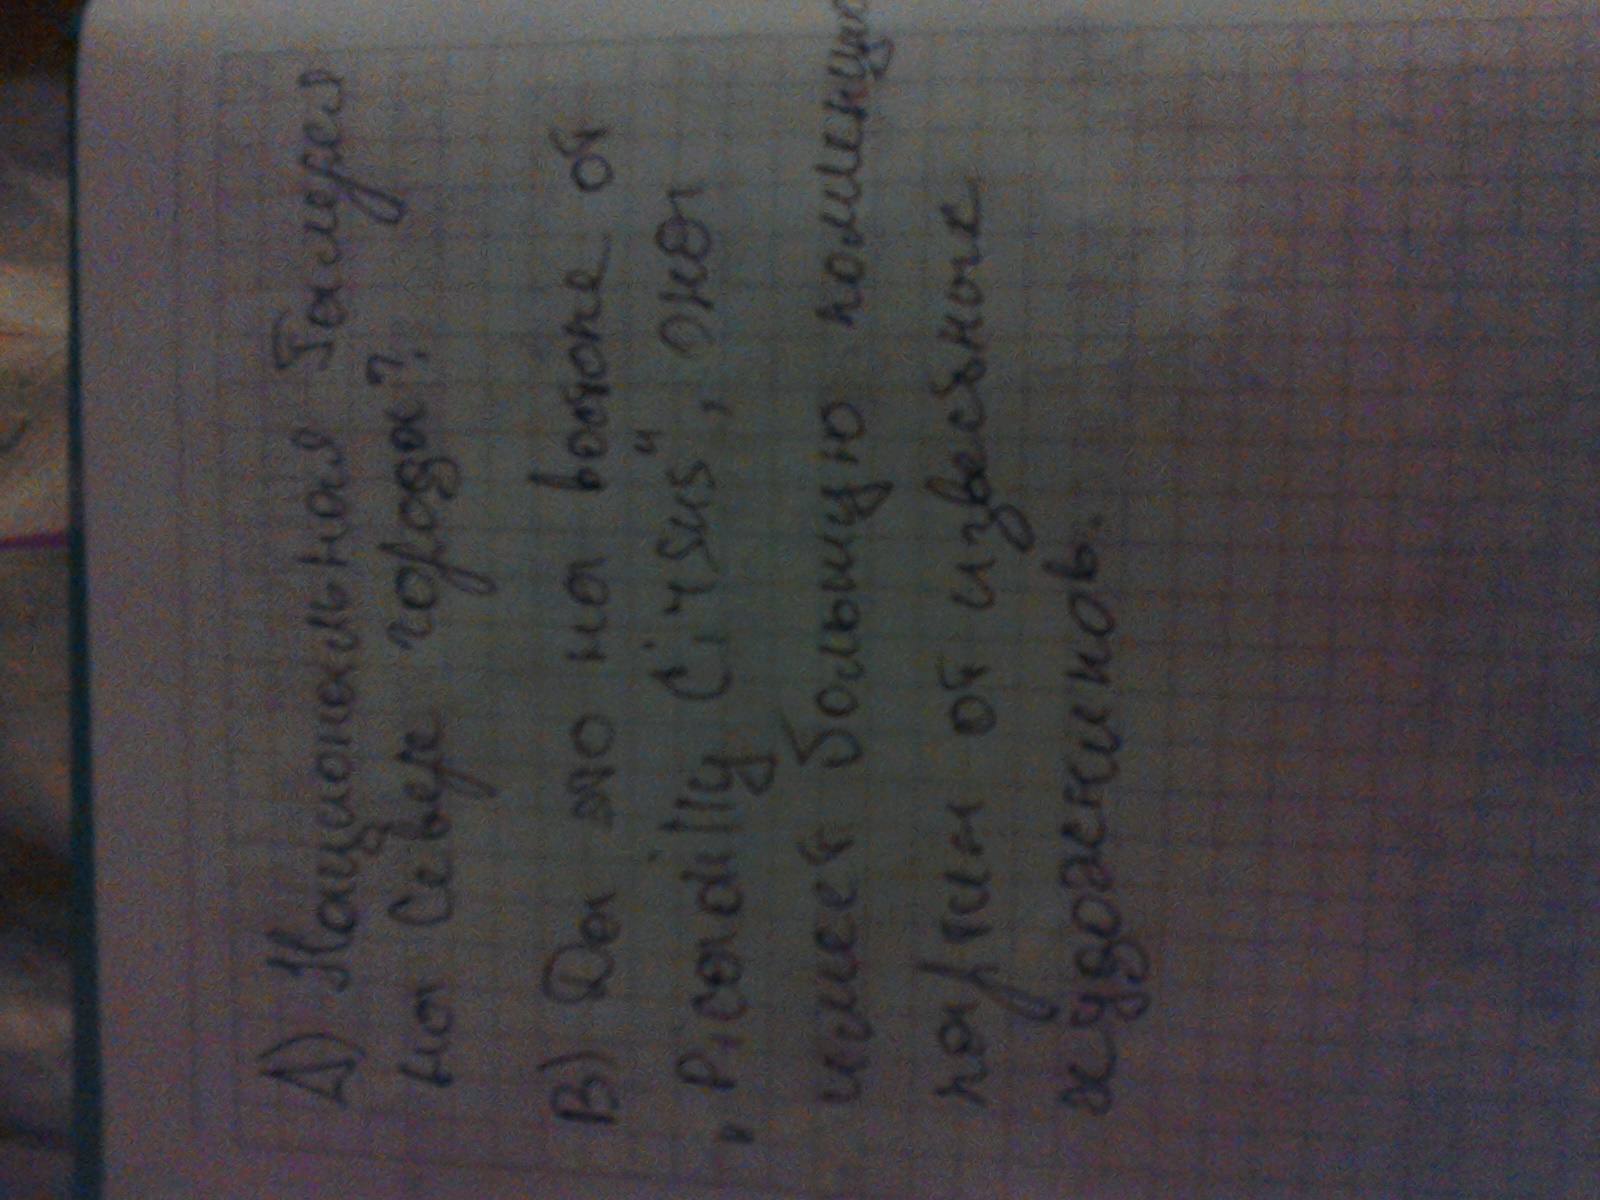 A) Национальная Галерея
на Севере города?
B) Да это на востоке от
"Picadilly Cirsus", она
имеет большую
картин от извесьные
художников.